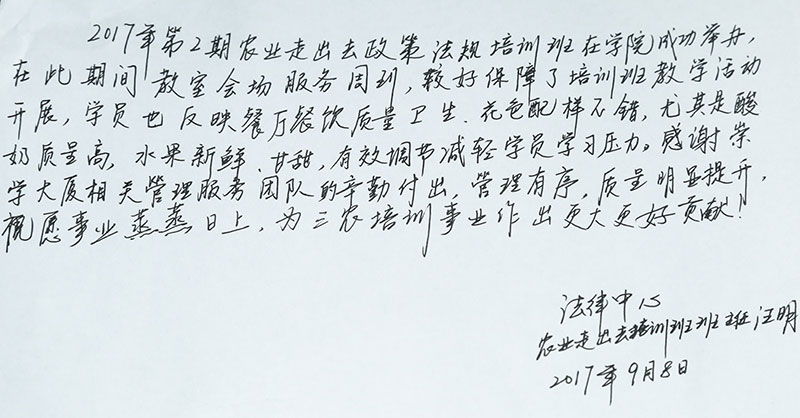 2017年第2期农业走出去政策法规培训班在学院成功举办,
在此期间教室会场服务周到,较好保障了培训班教学活动
开展,学员也反映餐厅餐饮质量卫生、花色配样不错,尤其是酸
奶质量高,水果新鲜、甘甜,有效调节减轻学员学习压力。感谢崇
学大厦相关管理服务团队的辛勤付出,管理有序,质量明显提升,
祝愿事业蒸蒸日上,为三农培训事业作出更大更好贡献!
法律中心
农业走出去培训班班主任汪明
2017年9月8日